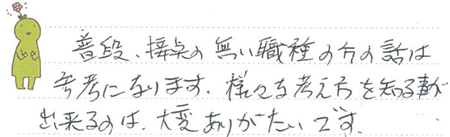 普段、接点の無い職種の方の話は
参考になります。様々な考え方を知る事が
出来るのは、大変ありがたいです。